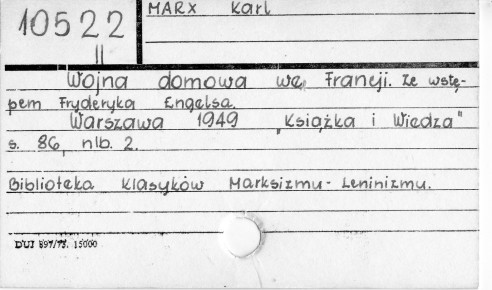 10522
II
MARX Karl
Wojna domowa we Francji. Ze wstę-
pem Fryderyka Engelsa.
Warszawa 1949 „Książka i Wiedza"
s. 86, nlb. 2.
Biblioteka Klasyków Marksizmu-Leninizmu.
DUJ 897/75. 15000